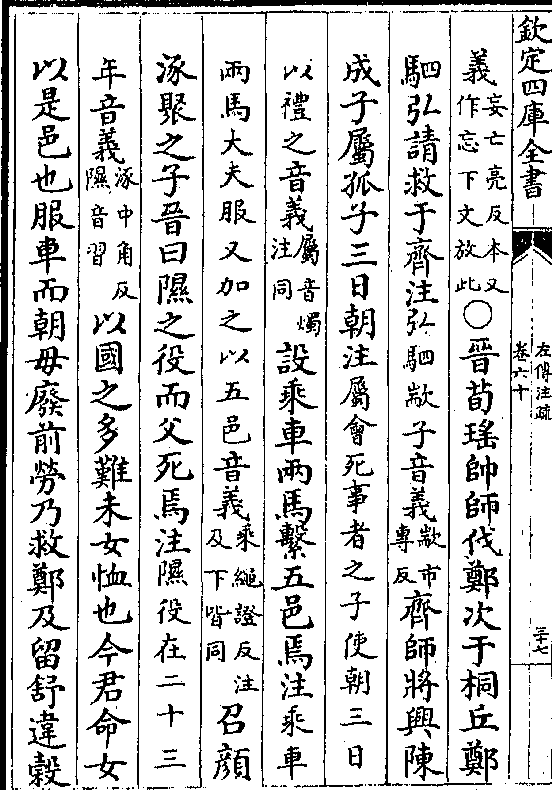 欽定四庫全書
左傳注疏
卷六十
三十七
義妄亡亮反本又作忘下文放此〇晉荀瑤帥師伐鄭次于桐丘鄭
駟弘請救于齊注弘駟歂子音義歂市專反齊師將興陳
成子屬孤子三日朝注屬會死事者之子使朝三日
以禮之音義屬音燭注同設乘車兩馬繫五邑焉注乘車
兩馬大夫服又加之以五邑音義乘繩證反注及下皆同召顔
涿聚之子晉曰隰之役而父死焉注隰役在二十三
年音義涿中角反隰音習以國之多難未女恤也今君命女
以是邑也服車而朝毋廢前勞乃救鄭及留舒違榖